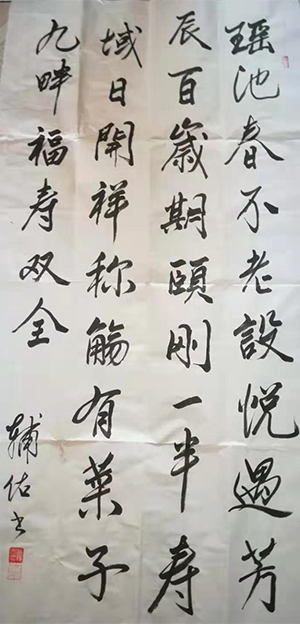 瑶池春不老設悦遇芳
辰百歲期頤剛一半寿
域日開祥称觞有莱子
九畔福寿双全
輔佑书